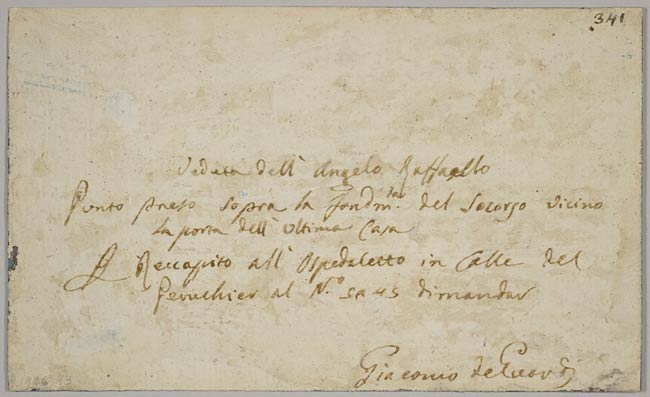 341
Veduta dell' Angelo Raffaello
Ponto preso sopra la Fondm.ta del Socorso vicino
la porta dell' Ultima Casa
Reccapito all' Ospedaletto in Calle del
Peruchier al N.o 5245 dimandar
Giacomo de Guardi